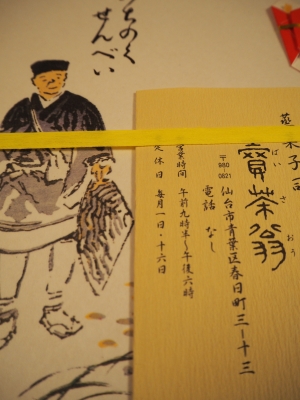 菓子司
賣茶翁
ばい さ おう
〒980
0821
仙台市青葉区春日町三ー十三
電話 なし
営業時間 午前九時半〜午後六時
定休日 毎月一日・十六日
ちのく
せんべい